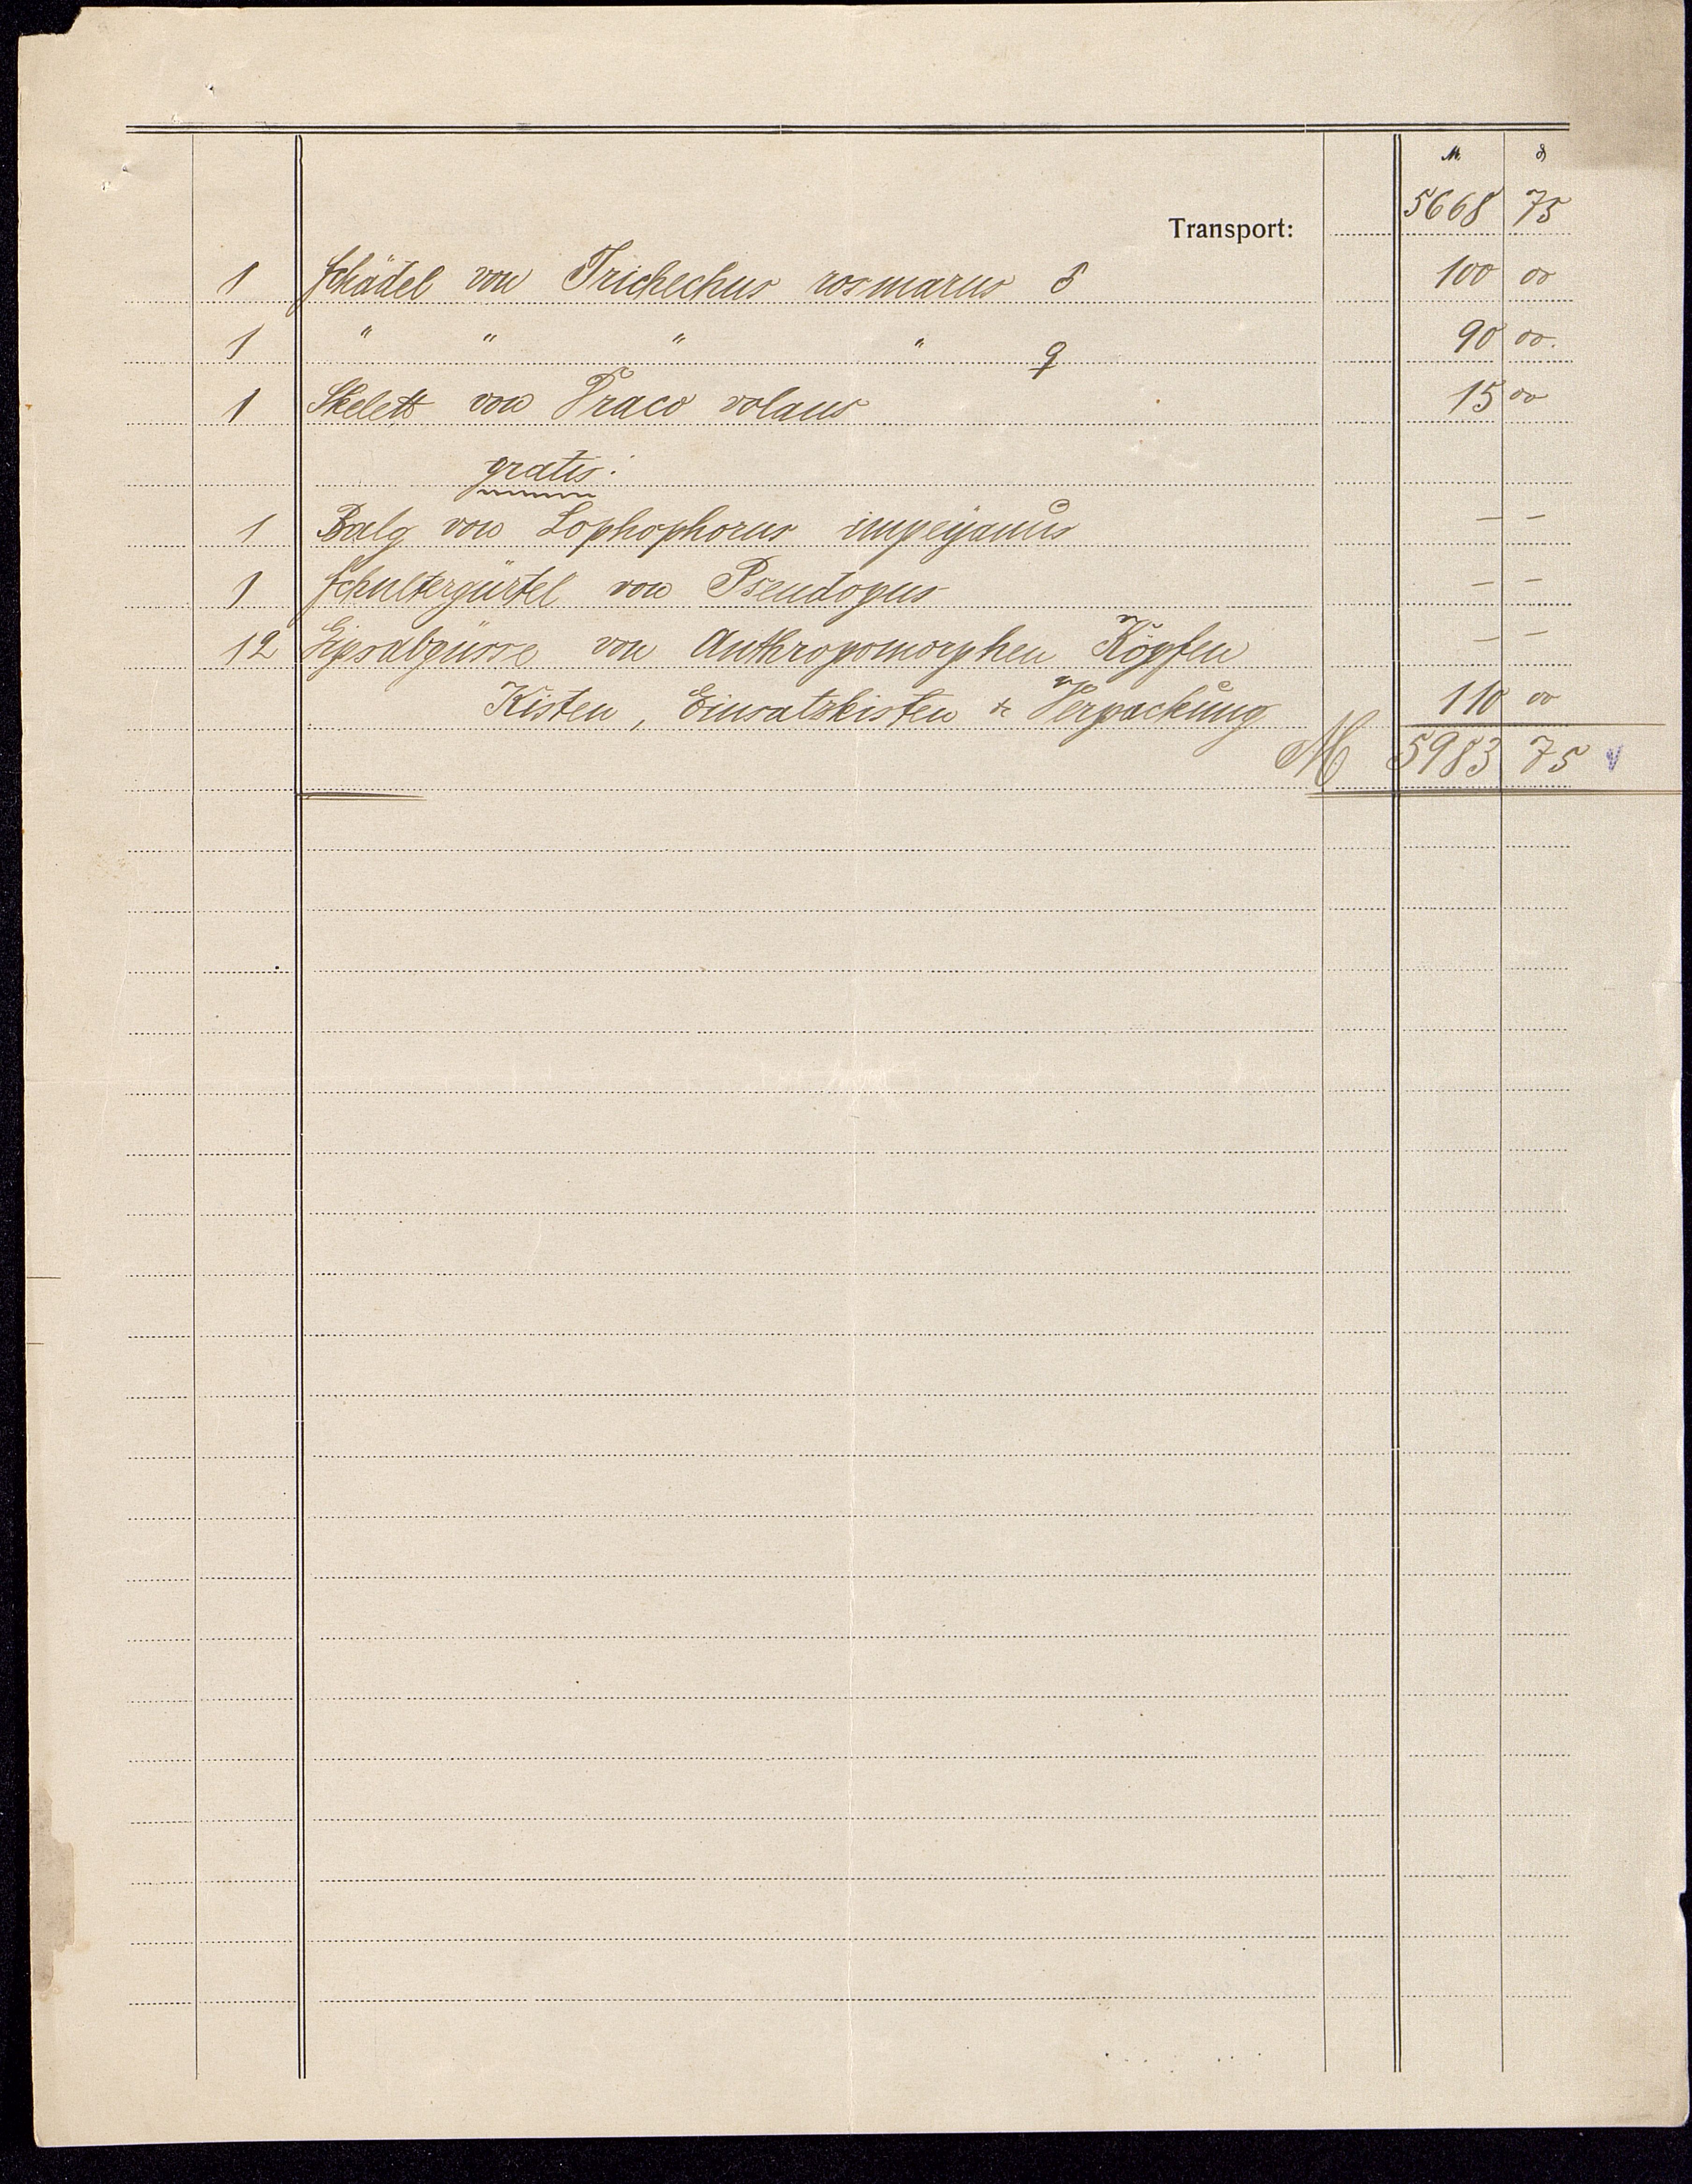 M. ₰
Transport: 5668 75
1 Schädel von Trichechus rosmarus ♂ 100 00
1 " " " " ♀ 90 00.
1 Skelett von Draco volans 15 00
gratis:
1 Balg von Lophophorus impeyanus — —
1 Schultergürtel von Pseudopus — —
12 Gipsabgüsse von Anthropomorphen Köpfen — —
Kisten, Einsatzkisten & Verpackung 110 00
M 5983 75 v